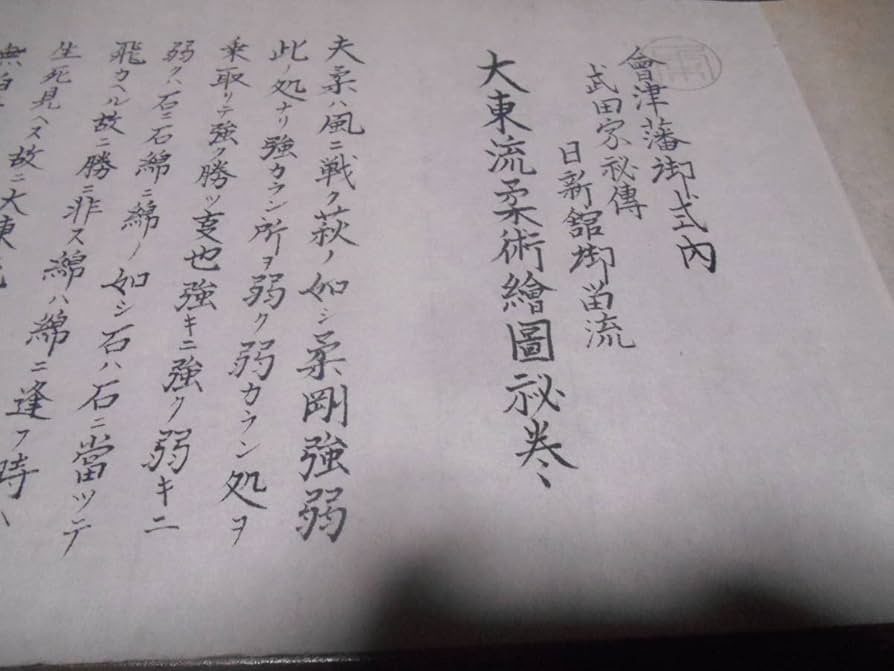 會津藩御式內
武田家祕傳
日新舘御畄流
大東流柔術繪圖祕巻
夫柔ハ風ニ戦ク萩ノ如シ柔剛強弱
此ノ処ナリ強カラン所ヲ弱ク弱カラン処ヲ
乗取リテ強ク勝ツ支也強キニ強ク弱キニ
弱クハ石ニ石綿ニ綿ノ如シ石ハ石ニ當ツテ
飛カヘル故ニ勝ニ非ス綿ハ綿ニ逢フ時ハ
生死見ヘス故ニ大東